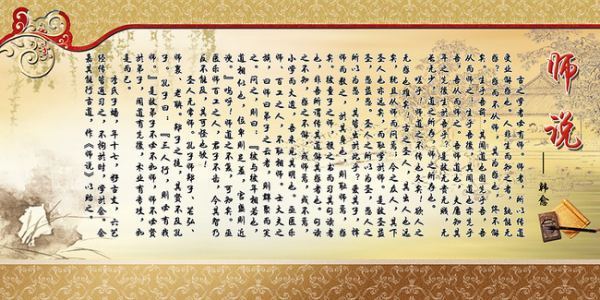 师说
——韩愈
古之学者必有师。师者，所以传道
受业解惑也。人非生而知之者，孰能无
惑？惑而不从师，其为惑也，终不解
矣。生乎吾前，其闻道也固先乎吾，吾
从而师之；生乎吾后，其闻道也亦先乎
吾，吾从而师之。吾师道也，夫庸知其
年之先后生于吾乎？是故无贵无贱，无
长无少，道之所存，师之所存也。
嗟乎！师道之不传也久矣！欲人之
无惑也难矣！古之圣人，其出人也远
矣，犹且从师而问焉；今之众人，其下
圣人也亦远矣，而耻学于师。是故圣益
圣，愚益愚。圣人之所以为圣，愚人之
所以为愚，其皆出于此乎？爱其子，择
师而教之；于其身也，则耻师焉，惑
矣。彼童子之师，授之书而习其句读者
也，非吾所谓传其道解其惑者也。句读
之不知，惑之不解，或师焉，或不焉，
小学而大遗，吾未见其明也。巫医乐
师百工之人，不耻相师。士大夫之族，
曰师曰弟子云者，则群聚而笑
之。问之，则曰：“彼与彼年相若也，
道相似也，位卑则足羞，官盛则近
谀。”呜呼！师道之不复，可知矣。巫
医乐师百工之人，君子不齿，今其智乃
反不能及，其可怪也欤！
圣人无常师。孔子师郯子、苌弘、
师襄、老聃。郯子之徒，其贤不及孔
子。孔子曰：“三人行，则必有我
师。”是故弟子不必不如师，师不必贤
于弟子，闻道有先后，术业有专攻，如
是而已。
李氏子蟠，年十七，好古文，六艺
经传皆通习之，不拘于时，学于余。余
嘉其能行古道，作《师说》以贻之。